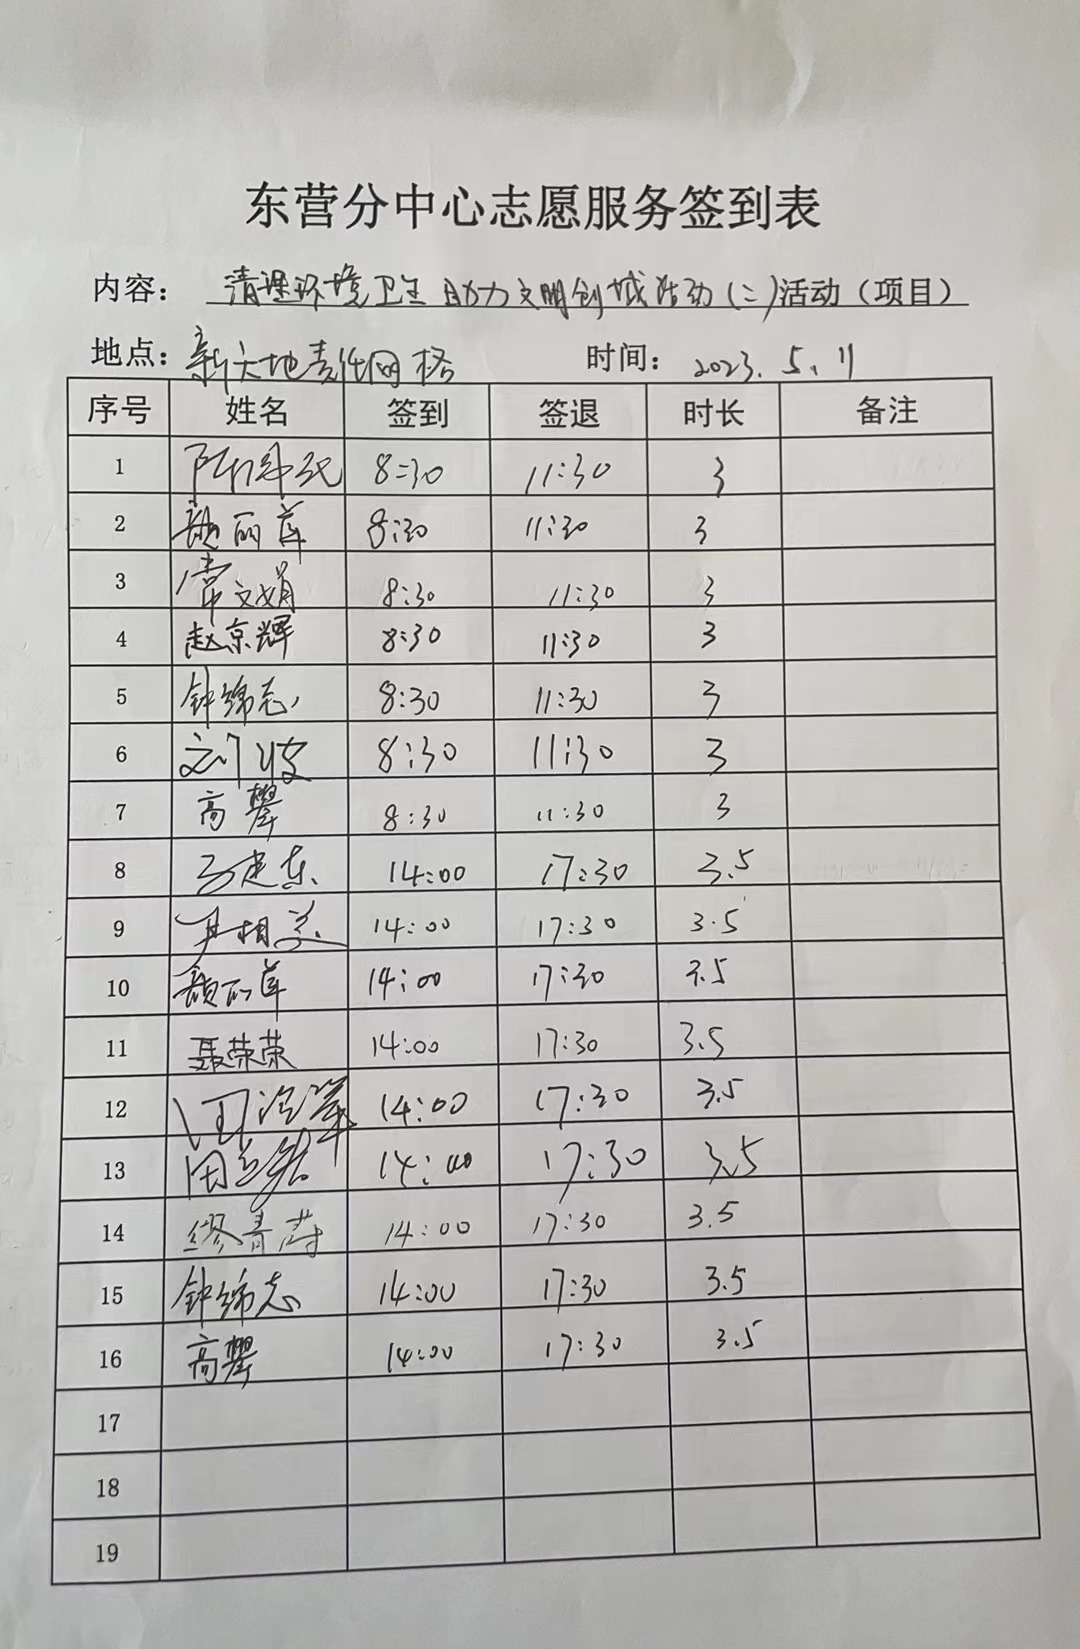 东营分中心志愿服务签到表
内容： 清理环境卫生 助力文明创城活动(二)活动（项目）
地点：新大地责任网格 时间： 2023.5.11
序号 姓名 签到 签退 时长 备注
1 8:30 11:30 3
2 丽萍 8:30 11:30 3
3 常文娟 8:30 11:30 3
4 赵京辉 8:30 11:30 3
5 钟绵志 8:30 11:30 3
6 8:30 11:30 3
7 高 8:30 11:30 3
8 马建东 14:00 17:30 3.5
9 相 14:00 17:30 3.5
10 颜丽萍 14:00 17:30 3.5
11 聂荣荣 14:00 17:30 3.5
12 14:00 17:30 3.5
13 田 14:00 17:30 3.5
14 缪青 14:00 17:30 3.5
15 钟绵志 14:00 17:30 3.5
16 高 14:00 17:30 3.5
17
18
19